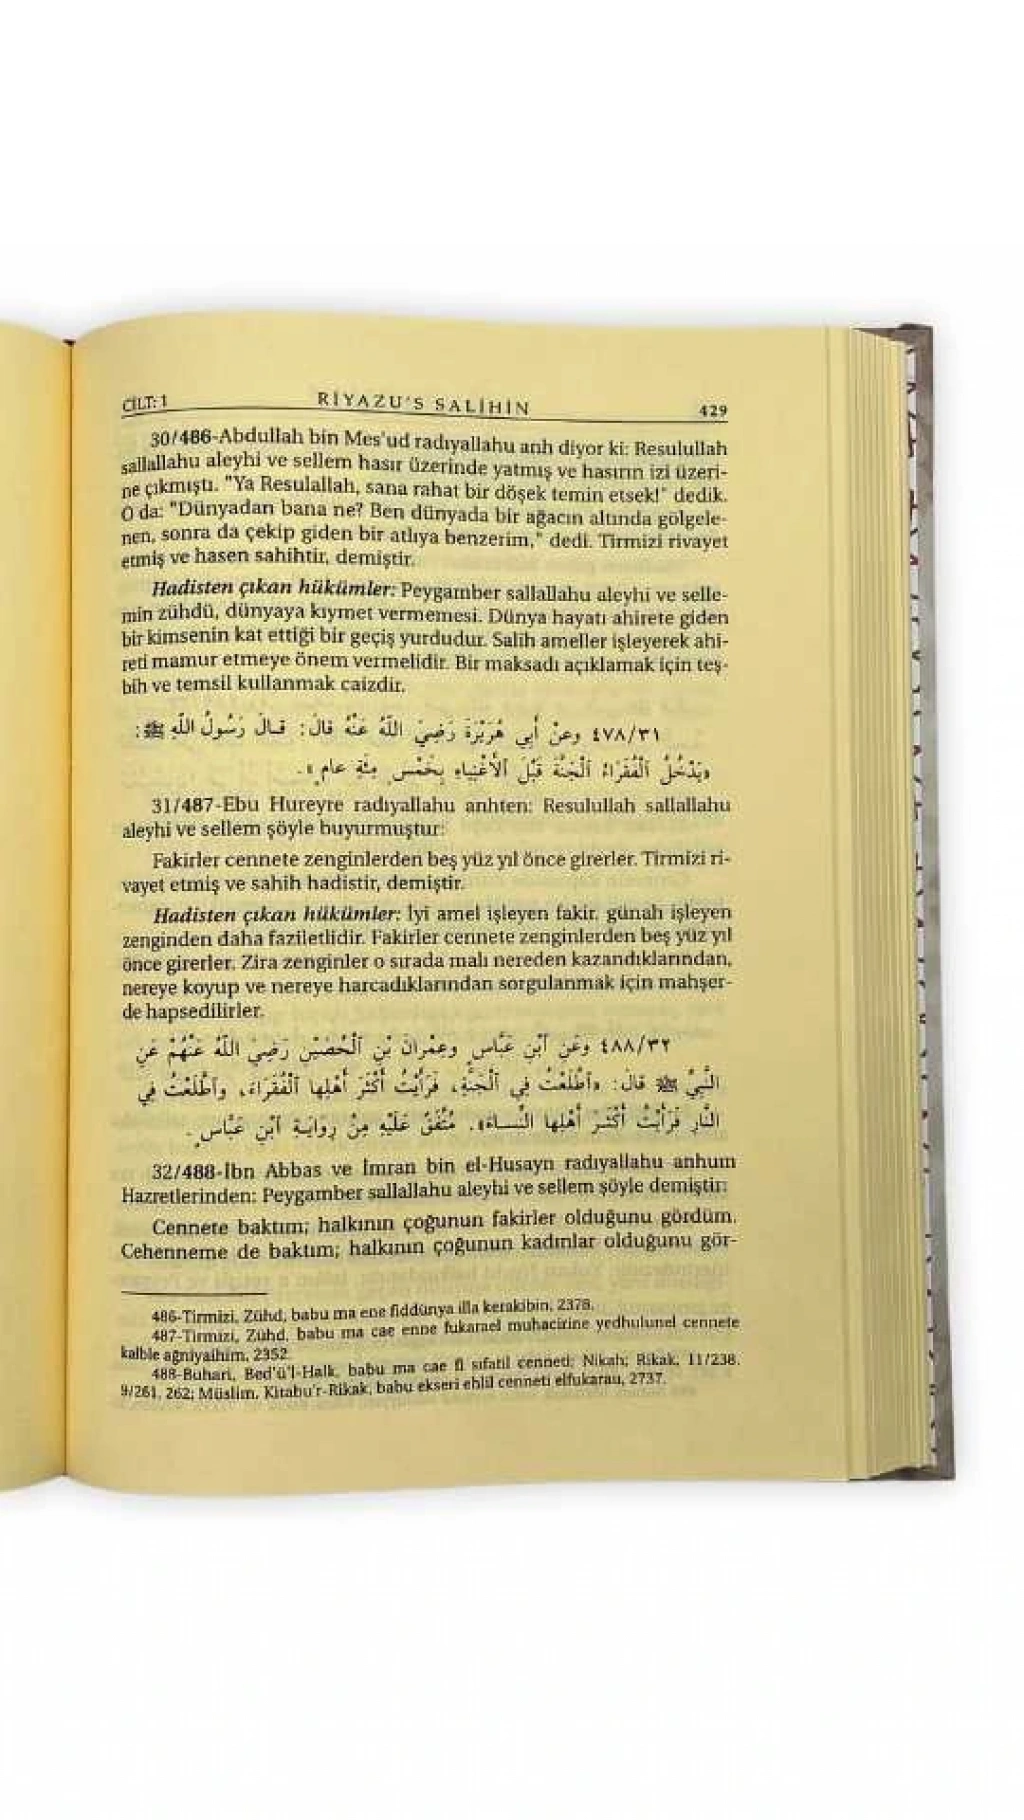 CİLT: 1 RİYAZU'S SALİHİN 429
30/486-Abdullah bin Mes'ud radıyallahu anh diyor ki: Resulullah
sallallahu aleyhi ve sellem hasır üzerinde yatmış ve hasırın izi üzeri-
ne çıkmıştı. "Ya Resulallah, sana rahat bir döşek temin etsek!" dedik.
O da: "Dünyadan bana ne? Ben dünyada bir ağacın altında gölgele-
nen, sonra da çekip giden bir atlıya benzerim," dedi. Tirmizi rivayet
etmiş ve hasen sahihtir, demiştir.
Hadisten çıkan hükümler: Peygamber sallallahu aleyhi ve selle-
min zühdü, dünyaya kıymet vermemesi. Dünya hayatı ahirete giden
bir kimsenin kat ettiği bir geçiş yurdudur. Salih ameller işleyerek ahi-
reti mamur etmeye önem vermelidir. Bir maksadı açıklamak için teş-
bih ve temsil kullanmak caizdir.
٤٧٨/٣١ وعن أَبِي هُرَيْرَةَ رَضِيَ اللَّهُ عَنْهُ قالَ: قـالَ رَسُولُ اللَّهِ ﷺ:
«يَدْخُلُ الْفُقَرَاءُ الْجَنَّةَ قَبْلَ الْأَغْنِيَاءِ بِخَمْسِ مِئَةِ عام».
31/487-Ebu Hureyre radıyallahu anhten: Resulullah sallallahu
aleyhi ve sellem şöyle buyurmuştur:
Fakirler cennete zenginlerden beş yüz yıl önce girerler. Tirmizi ri-
vayet etmiş ve sahih hadistir, demiştir.
Hadisten çıkan hükümler: İyi amel işleyen fakir, günah işleyen
zenginden daha faziletlidir. Fakirler cennete zenginlerden beş yüz yıl
önce girerler. Zira zenginler o sırada malı nereden kazandıklarından,
nereye koyup ve nereye harcadıklarından sorgulanmak için mahşer-
de hapsedilirler.
٤٨٨/٣٢ وعَنِ ابْنِ عَبَّاسٍ وعِمْرانَ بْنِ الْحُصَيْنِ رَضِيَ اللَّهُ عَنْهُمْ عَنِ
النَّبِيِّ ﷺ قال: «اطَّلَعْتُ فِي الْجَنَّةِ، فَرَأَيْتُ أَكْثَرَ أَهْلِها الْفُقَرَاءَ، واطَّلَعْتُ فِي
النَّارِ فَرَأَيْتُ أَكْثَـرَ أَهْلِها النِّسـاءَ». مُتَّفَقٌ عَلَيْهِ مِنْ رِوايَةِ ابْنِ عَبَّاسٍ.
32/488-İbn Abbas ve İmran bin el-Husayn radıyallahu anhum
Hazretlerinden: Peygamber sallallahu aleyhi ve sellem şöyle demiştir:
Cennete baktım; halkının çoğunun fakirler olduğunu gördüm.
Cehenneme de baktım; halkının çoğunun kadınlar olduğunu gör-
486-Tirmizi, Zühd, babu ma ene fiddünya illa kerakibin, 2378.
487-Tirmizi, Zühd, babu ma cae enne fukarael muhacirine yedhulunel cennete
kalble ağniyaihim, 2352.
488-Buhari, Bed'ü'l-Halk, babu ma cae fi sıfatil cenneti; Nikah; Rikak, 11/238,
9/261, 262; Müslim, Kitabu'r-Rikak, babu ekseri ehlil cenneti elfukarau, 2737.